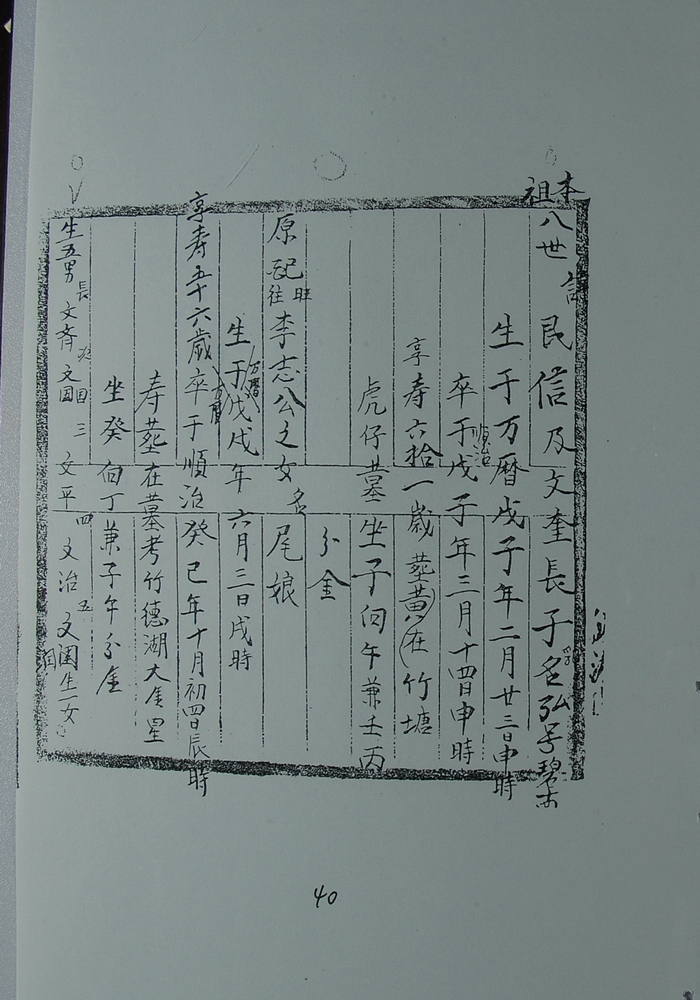 本祖八世 諱 民信及文奎長子名弘号碧
生于万曆戊子年二月廿三日申時
卒于順治戊子年三月十四日申時
享寿六拾一歲 塟黄在竹塘
虎仔墓坐子向午兼壬丙
分金
原配 李志公之女名尾娘
生于万曆戊戌年六月三日戌時
享寿五十六歲卒于順治癸巳年十月初四日辰時
寿塟在墓考竹德湖大金星
坐癸向丁兼子午分金
生五男 長文齐 次文国 三文平 四文治 五文国生一女
40